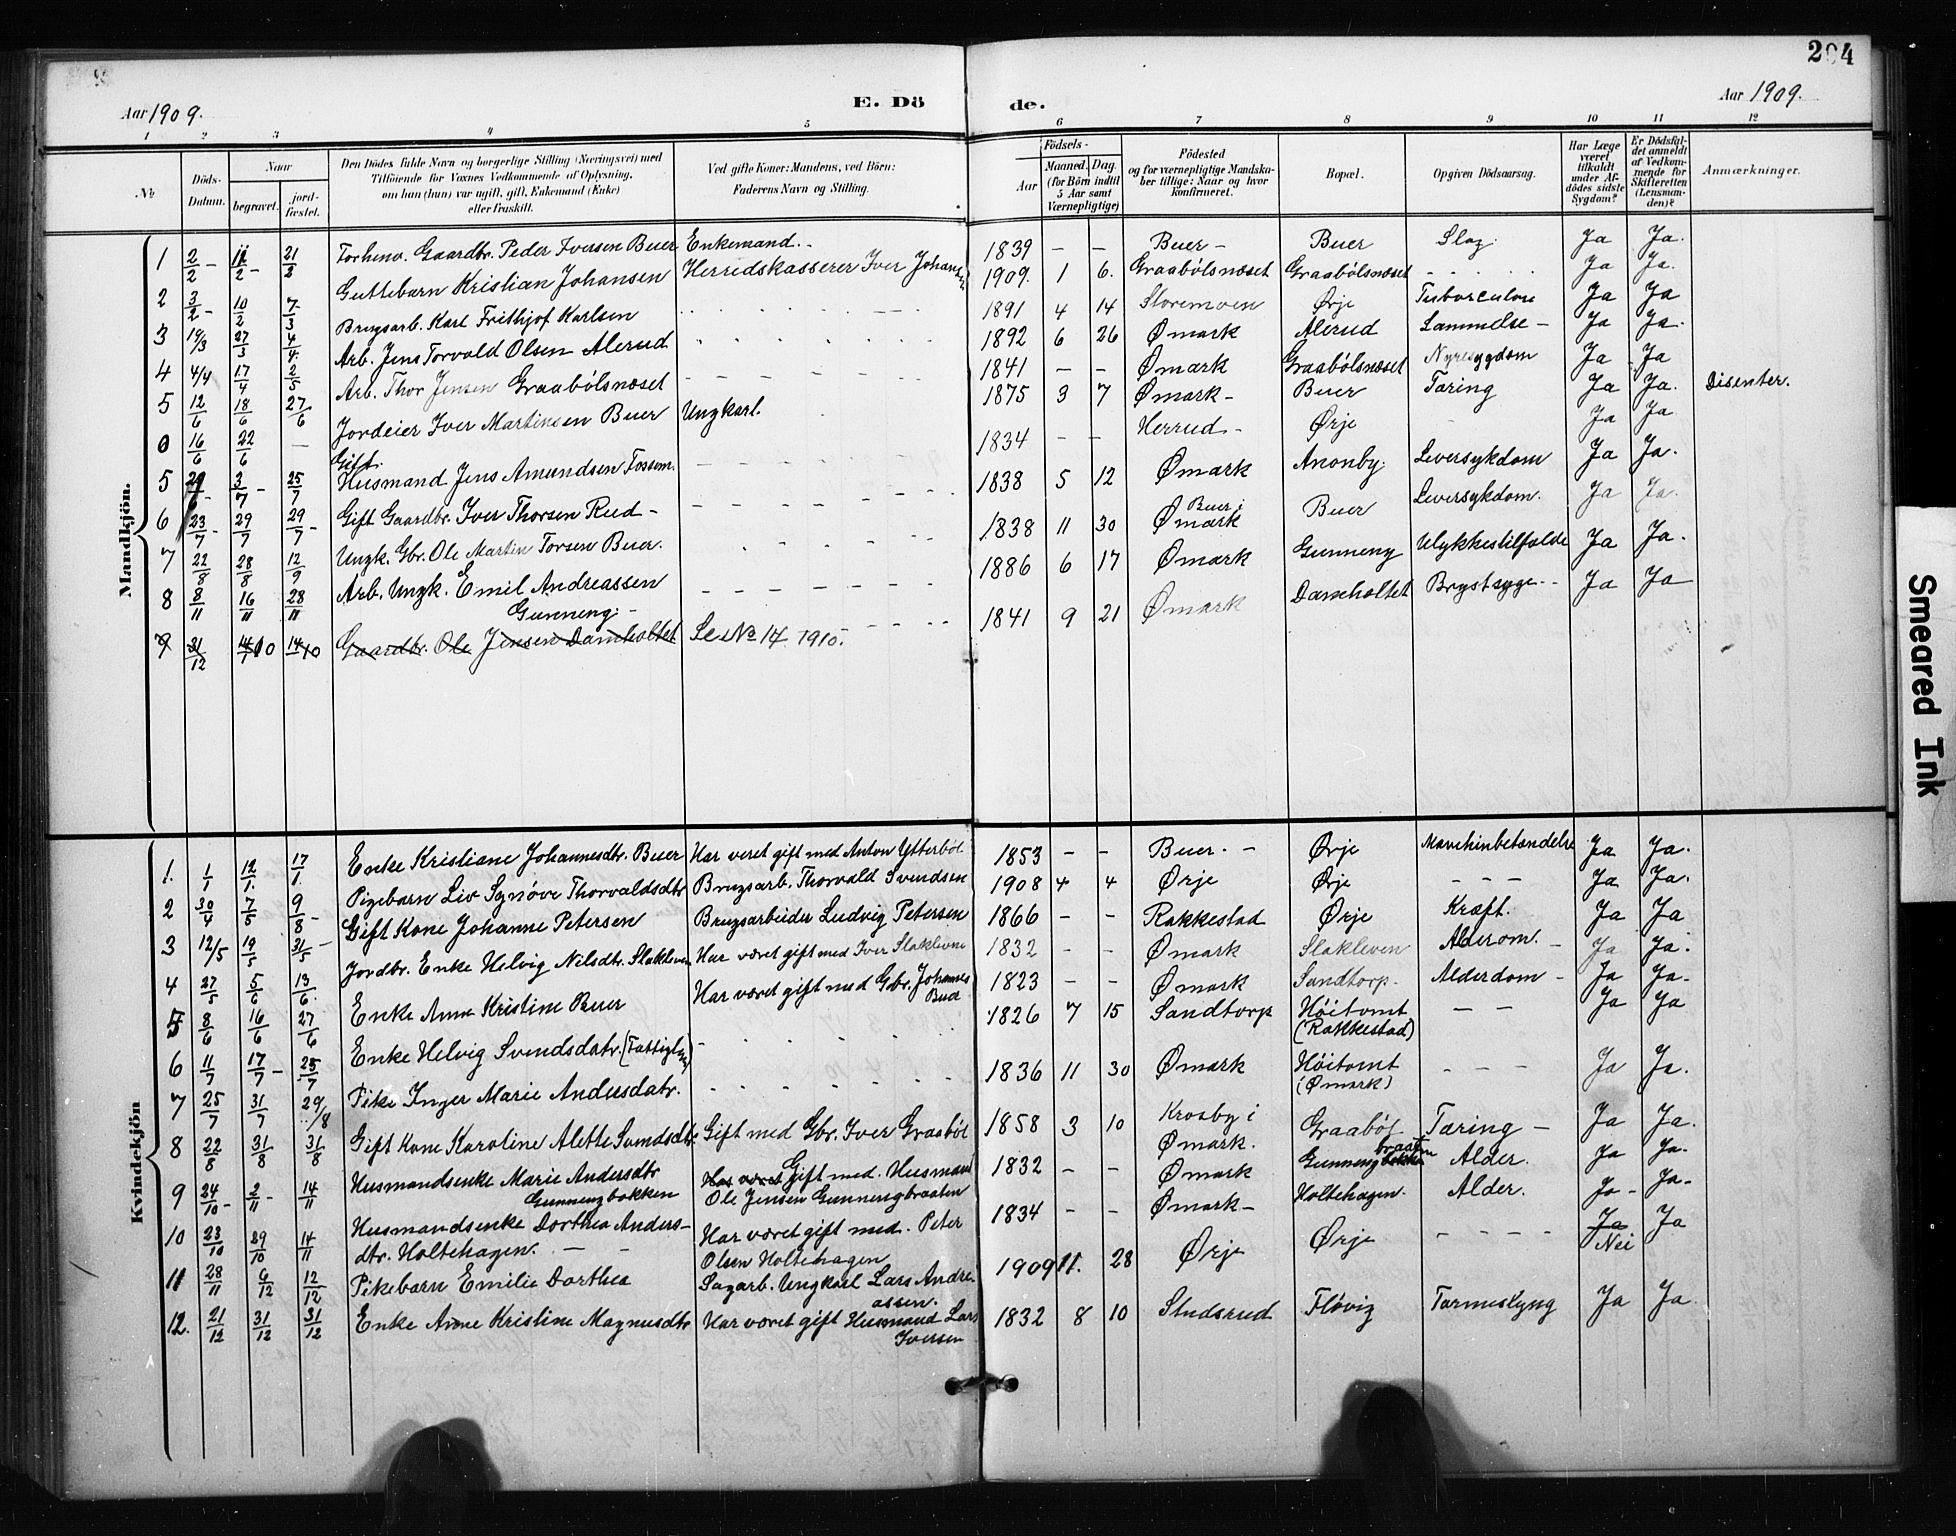 204
Aar 1909.
E. Dö
de.
Aar 1909.
1 2 3 4 5 6 7 8 9 10 11 12
No
Döds-Datum.
Naar
begravet.
jord-fæstet.
Den Dödes fulde Navn og borgerlige Stilling (Næringsvei) med
Tilföiende for Voxnes Vedkommende af Oplysning,
om han (hun) var ugift, gift, Enkemand (Enke)
eller fraskilt.
Ved gifte Koner: Mandens, ved Börn:
Faderens Navn og Stilling.
Födsels-
Aar
Maaned. Dag.
(for Börn indtil
5 Aar samt
Værnepligtige)
Födested
og for værnepligtige Mandska-
ber tillige: Naar og hvor
konfirmeret.
Bopæl.
Opgiven Dödsaarsag.
Har Læge
været
tilkaldt
under Af-
dödes sidste
Sygdom?
Er Dödsfal-
det anmeldt
af Vedkom-
mende for
Skifteretten
(Lensman-
den)?
Anmærkninger.
Mandkjön.
1 2/2 - 11/2 - 21/2 Forhenv. Gaardbr. Peder Iversen Buer Enkemand. - 1839 - - Buer - Buer Slag. Ja Ja.
Guttebarn Kristian Johansen Herredskasserer Iver Johansen 1909. 1 6. Graabölsnæset Graabölsnæset - Ja Ja.
2 3/2 - 10/2 7/3 Brugsarb. Karl Frithjof Karlsen 1891 4 14 Storemoen Ørje Tuberculose Ja Ja
3 19/3 27/3 4/4 Arb. Jens Torvald Olsen Alerud 1892 6 26 Ømark Alerud Lammelse - Ja Ja.
4 4/4 17/4 2/5 Arb. Thor Jensen Graabölsnæset 1841 - - Ømark Graabölsnæset Nyresygdom Ja Ja
5 12/6 18/6 27/6 Jordeier Iver Martinsen Buer Ungkarl. 1875 3 7 Ømark - Buer Tæring Ja Ja. Disenter.
0 16/6 22/6 - Gift.
Husmand Jens Amundsen Fossem. 1834 - - Herrud - Ørje Ja Ja
5 3/7 - 25/7 Gift Gaardbr. Iver Thorsen Rud - 1838 5 12 Ømark Anonby. Leversykdom Ja Ja.
6 23/7 - 29/7 29/7 - Ungk. Gbr. Ole Martin Torsen Buer. 1838 11 30 Buer i Ømark Buer Leversykdom. Ja Ja.
7 22/8 28/8 12/9 Arb. Ungk. Emil Andreassen
Gunneng - 1886 6 17 Ømark Gunneng Ulykkestilfælde Ja Ja.
8 8/11 16/11 28/11
9 31/12 14/1 10 14/1 10 Gaardbr. Ole Jensen Damholtet Se No 14 1910. 1841 9 21 Ømark Damholtet Brystsyge - Ja Ja
Kvindekjön
1. 1/1 12/1. 17/1. Enke Kristiane Johannesdtr. Buer Har veret gift med Anton Ytterböl 1853 - - Buer. - Ørje Ja Ja.
2 30/4 7/5 9/8 - Pigebarn Liv Synöve Thorvaldsdtr Brugsarb. Thorvald Svendsen 1908 4 4 Ørje Ørje - - - Ja Ja.
3 12/5 19/5 31/5 - Gift Kone Johanne Petersen Brugsarbeider Ludvig Petersen 1866 - - Rakkestad Ørje Kræft. Ja Ja
4 27/5 5/6 13/6. Jordbr. Enke Helvig Nilsdtr. Slakleven Har været gift med Iver Slaklevne 1832 - - Ømark Slakleven Alderom. - Ja Ja.
5 8/6 16/6 27/6 Enke Anne Kristine Buer Har været gift med Gbr. Johannes
Buer 1823 - - Ømark Sandtorp - Alderdom - Ja Ja.
6 11/7 17/7 - 25/7 Enke Helvig Svendsdatr. (Fattiglem) - 1826 7 15 Sandtorp Höitomt
(Rakkestad) - - Ja Ja
7 25/7 31/7 29/8 Pike Inger Marie Andersdatr. 1836 11 30 Ømark Höitomt
(Ømark) - - - Ja Ja.
8 22/8 31/8 31/8 Gift Kone Karoline Alette Svendsdtr. Gift med Gbr. Iver Graaböl 1858 3 10 Krosby i
Ømark. Graaböl Tæring - Ja Ja.
9 24/10 - 2/11 - 14/11 Husmandsenke Marie Andersdtr
Gunnengbakken Har været Gift med. Husmand
Ole Jensen Gunnengbraaten 1832 - - Ømark Gunnengbakken braaten Alder. Ja Ja.
10 23/10 29/10 14/11 Husmandsenke Dorthea Anders-
dtr. Holtehagen. - - Har været gift med. Peter
Olsen Holtehagen 1834 - - Ømark - Holtehagen. Alder. Ja - Ja.
11 28/11 6/12 12/12 Pikebarn Emilie Dorthea Sagarb. Ungkarl Lars Andre-
assen. 1909 11. 28 Ørje Ørje - - - - Ja Nei Ja
12. 21/12 31/12 31/12 Enke Anne Kristine Magnusdtr Har været gift Husmand Lars
Iversen 1832 8 10 Studsrud Flövig Tarmeslyng Ja Ja
Smeared Ink